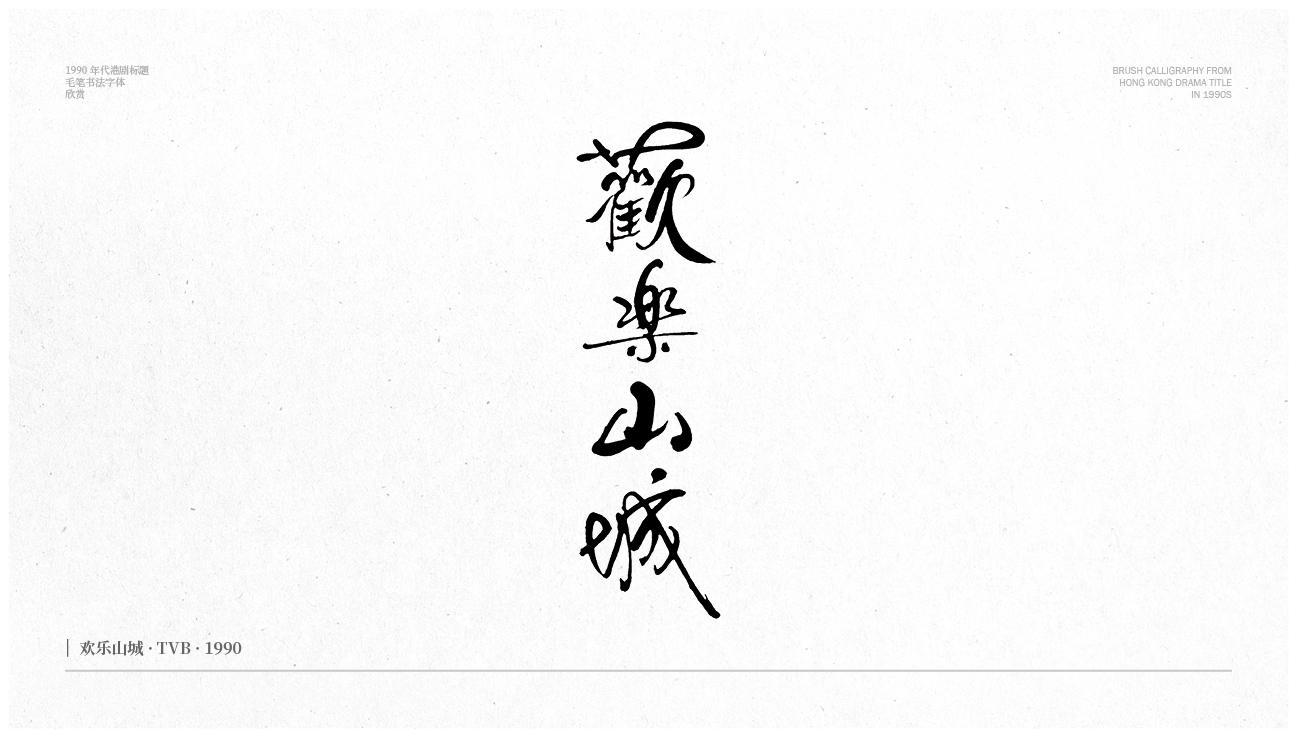 1990 年代港剧标题
毛笔书法字体
欣赏
BRUSH CALLIGRAPHY FROM
HONG KONG DRAMA TITLE
IN 1990S
歡
楽
山
城
欢乐山城 · TVB · 1990